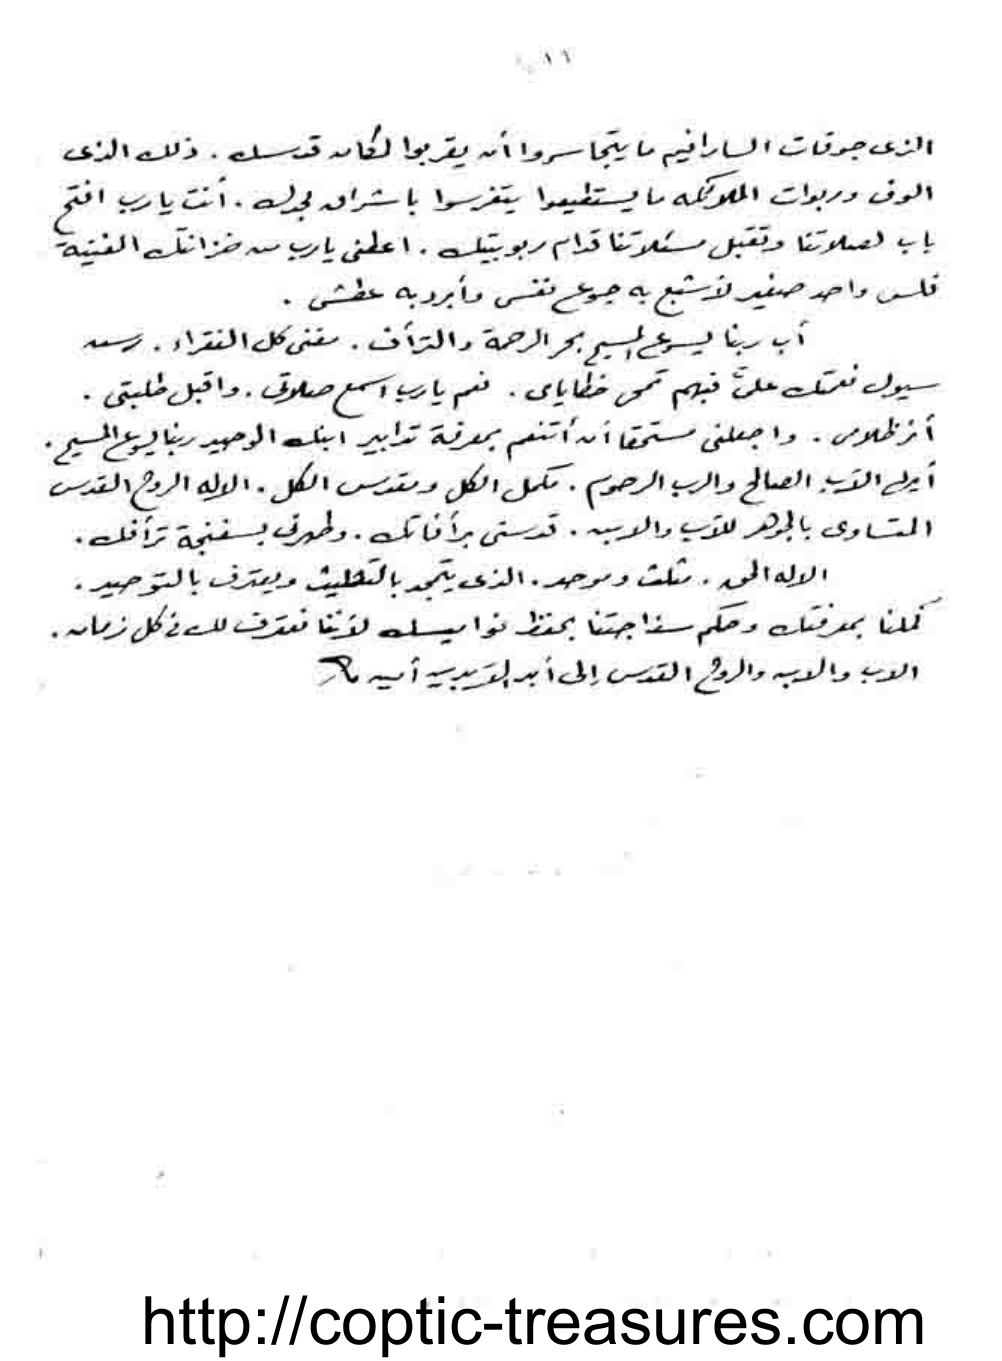 ١٦
الذى جوقات السارافيم ما يتجاسروا أن يقربوا لمكان قدسك . ذلك الذى
الوف وربوات الملائكه ما يستطيعوا يتفرسوا باشراق مجدك . أنت يارب افتح
باب لصلاتنا وتقبل مسئلاتنا قدام ربوبيتك . اعطنى يارب من خزانتك الغنية
فلس واحد صغير لأشبع به جوع نفسى وأبرد به عطشى .
أب ربنا يسوع المسيح بحر الرحمة والترأف . مغنى كل الفقراء .
سيول نعمتك علىَّ فبهم تمحى خطاياى . نعم يارب اسمع صلاتى . واقبل طلبتى .
أنر ظلامى . واجعلنى مستحقا أن أتنعم بمعرفة تدابير ابنك الوحيد ربنا يسوع المسيح .
الآب الصالح والرب الرحوم . مكمل الكل ومقدس الكل . الاله الروح القدس
المتساوى بالجوهر للآب والابن . قدسنى برأفاتك . وطهرنى بسفنجة ترأفك .
الاله الحق . مثلث وموحد . الذى يتمجد بالتثليث ويعترف بالتوحيد .
كملنا بمعرفتك وحكم سذاجتنا بحفظ نواميسك لأننا نعترف لك فى كل زمان .
الاب والابن والروح القدس إلى أبد الآبدين أمين
http://coptic-treasures.com